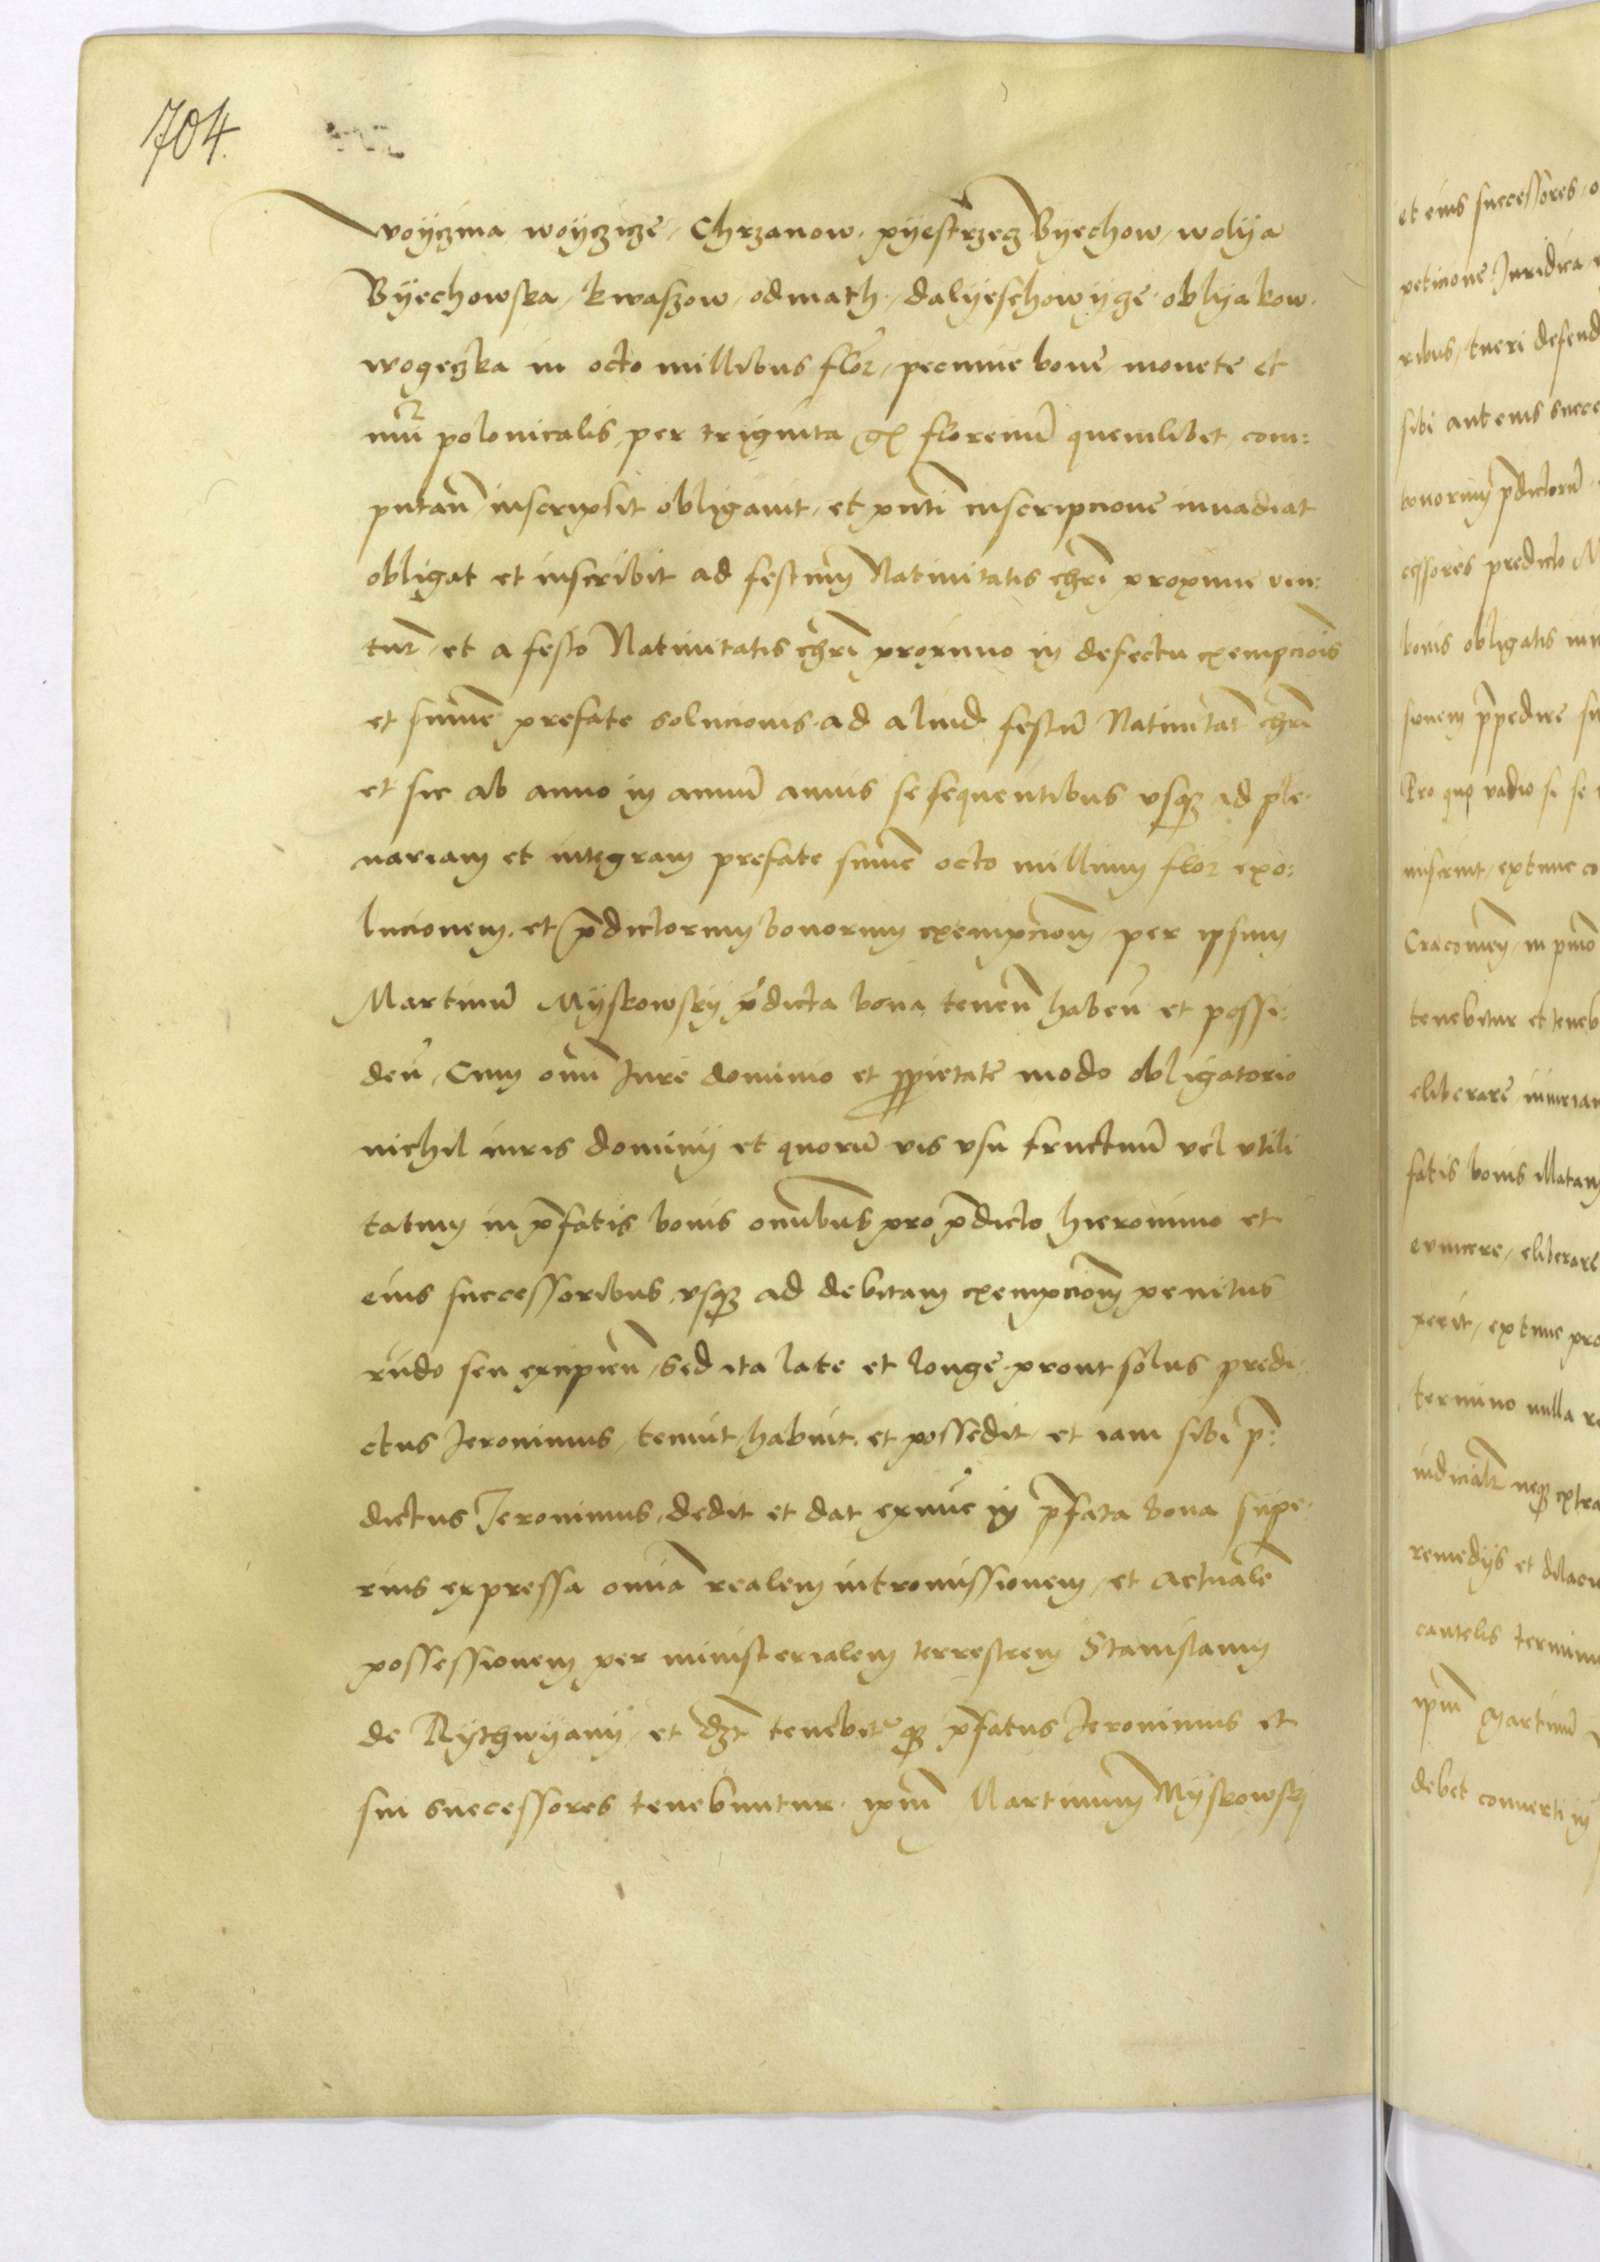 704.
woyczina woyczicze, Chrzanow, pyestrzecz Byechow, wolya
Byechowska, kwaszow, odmath, dalyeschowyze, oblyakow.
wogeczka in octo millibus flor, pecunie bone monete et
polonicalis, per triginta florenū quemlibet com:
putañ inscripsit obligavit, et pñti inscripcione invadiat
obligat et inscribit ad festum Nativitatis chri proxime ven:
tur, et a festo Nativitatis chri proximo in defectu exempcionis
et summe prefate solucionis ad aliud festū Nativitat chri
et sic ab anno in annū annis se sequentibus usq ad ple-
nariam et integram prefate summe octo millium flor exo:
lucionem, et pdictorum bonorum exempcionem, per ipsum
Martinū Myskowsky pdicta bona teneñ habeñ et possi:
deñ, Cum omi Iure dominio et ppietate modo obligatorio
nichil iuris dominij et quorū vis usu fructuū vel utili
tatum in pfatis bonis omibus pro pdicto hieronimo et
eius successoribus usq ad debitam exempcionem penitus
sen excipieñ, sed ita late et longe prout solus predi:
ctus Ieronimus, tenuit, habuit, et possedit, et iam sibi p:
dictus Ieronimus, dedit et dat exnūc in pfata bona supe-
rius expressa omia realem intromissionem, et actualē
possessionem per ministerialem terrestrem Stanislaum
de Rythwyany, et tenebitr pfatus Ieronimus et
sui successores tenebuntur, ipm Martinum Myskowsky
et eius successores, o
peticione Iuridica
ribus, tueri defend
sibi aut eius succe
bonorum pdictorū
cessores predicto M
bonis obligatis
sionem ppedire
Pro quo vadio si se
miserint, extunc co
Cracovień, in
tenebitur et teneb
eliberare, iniuriam
fatis bonis illatam
evincere, eliberare
perit, extunc pro
termino nulla re
iudicialr neq extra
remedijs et dilac
cautelis termin
ipm Martinū
debet converti in